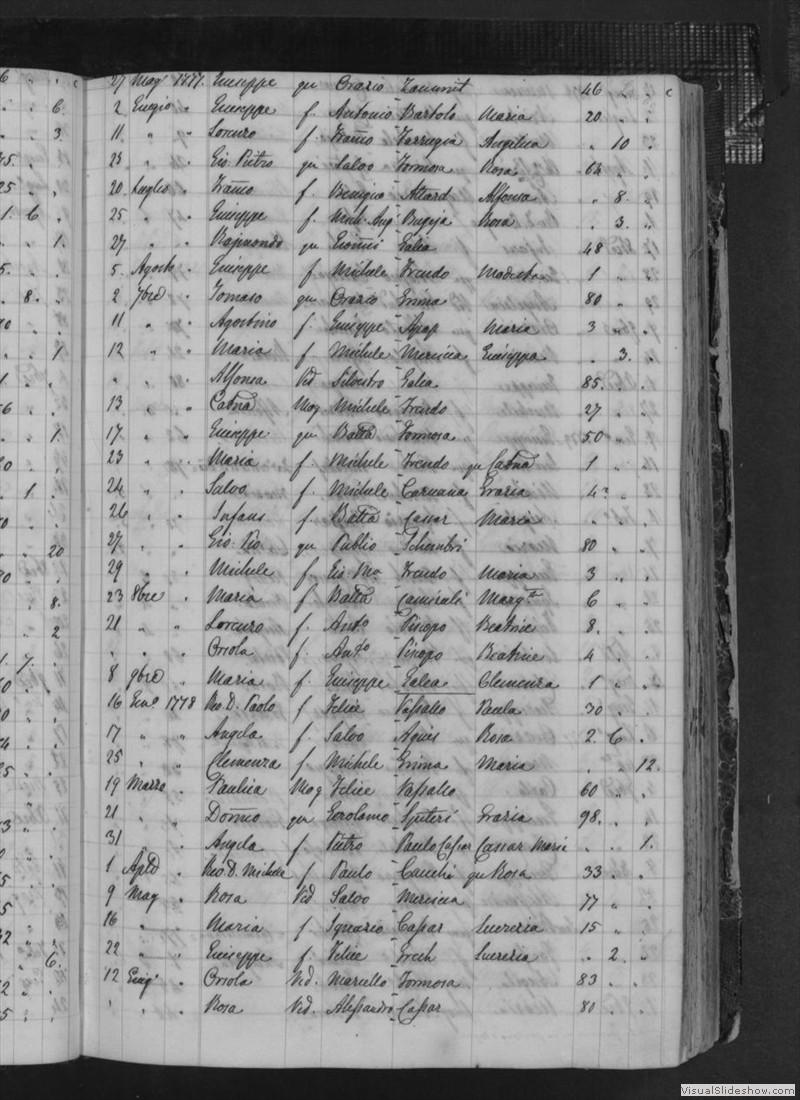 6 . .
27 Mag. 1777. Giuseppe qu Orazio Zammit 46 . .
. . 6.
2 Giugio . Giuseppe f. Antonio Bartolo Maria 20 . .
. . 3.
11 " . Lorenzo f. Franco Farrugia Angelica . 10 .
25. . Gio. Pietro qu Salvo Formosa Rosa 64 . .
25 . .
20. Luglio . Franco f. Benigio Attard Alfonsa . 8. .
1. 6 .
25 " . Giuseppe f. Mich. Ang. Bugeja Rosa . 3. .
. . 1.
27 " . Rajmondo qu Giomi Galea 48 . .
5. . .
5. Agosto . Giuseppe f. Michele Frendo Modesta 1 . .
. 8. .
2 7bre . Tomaso qu Orazio Grima 80 . .
11 " . Agostino f. Giuseppe Agap Maria 3 . .
. . 1
12 " . Maria f. Michele Mercieca Giuseppa . 3. .
" " . Alfonsa Vid Silvestro Galea 85. . .
13 " . Catna Mog Michele Frendo 27 . .
. . 1.
17 " . Giuseppe qu Batta Formosa 50 . .
23 " . Maria f. Michele Frendo qu Catna 1 . .
. 1 .
24 " . Salvo f. Michele Caruana Grazia 4 . .
26 " . Infans f. Batta Cassar Maria . . .
. . 20
27 " . Gio. Pio qu Publio Schembri 80 . .
29 " . Michele f. Gio. Ma Frendo Maria 3 . .
. . 8.
23 8bre . Maria f. Batta Camirali Margta 6 . .
. . 2
21 " . Lorenzo f. Anto Pisopo Beatrice 8. . .
" " . Orsola f. Anto Pisopo Beatrice 4 . .
1. 7. .
8 9bre . Maria f. Giuseppe Galea Clemenza 1 . .
16 Geno 1778 Rdo. D. Paolo f. Felice Vassallo Paula 30 . .
17 " " Angela f. Salvo Agius Rosa 2. 6 .
25 " " Clemenza f. Michele Grima Maria . . 12.
19 Marzo . Paulica Mog Felice Vassallo 60 . .
21 " . Domco qu Gerolamo Spiteri Grazia 98. . .
31 " . Angela f. Pietro Paulo Cassar Cassar Maria . . 1.
1 Aple . Rdo. D. Michele f Paulo Cauchi qu Rosa 33 . .
9 Mag . Rosa Vid Salvo Mercieca 77 . .
16 " . Maria f. Ignazio Cassar Lucrezia 15 . .
. . 6.
22 " . Giuseppe f. Felice Grech Lucrezia . 2. .
12 Giugo . Orsola Vid. Marcello Formosa 83 . .
" " . Rosa Vid. Alessandro Cassar 80 . .
VisualSlideshow.com